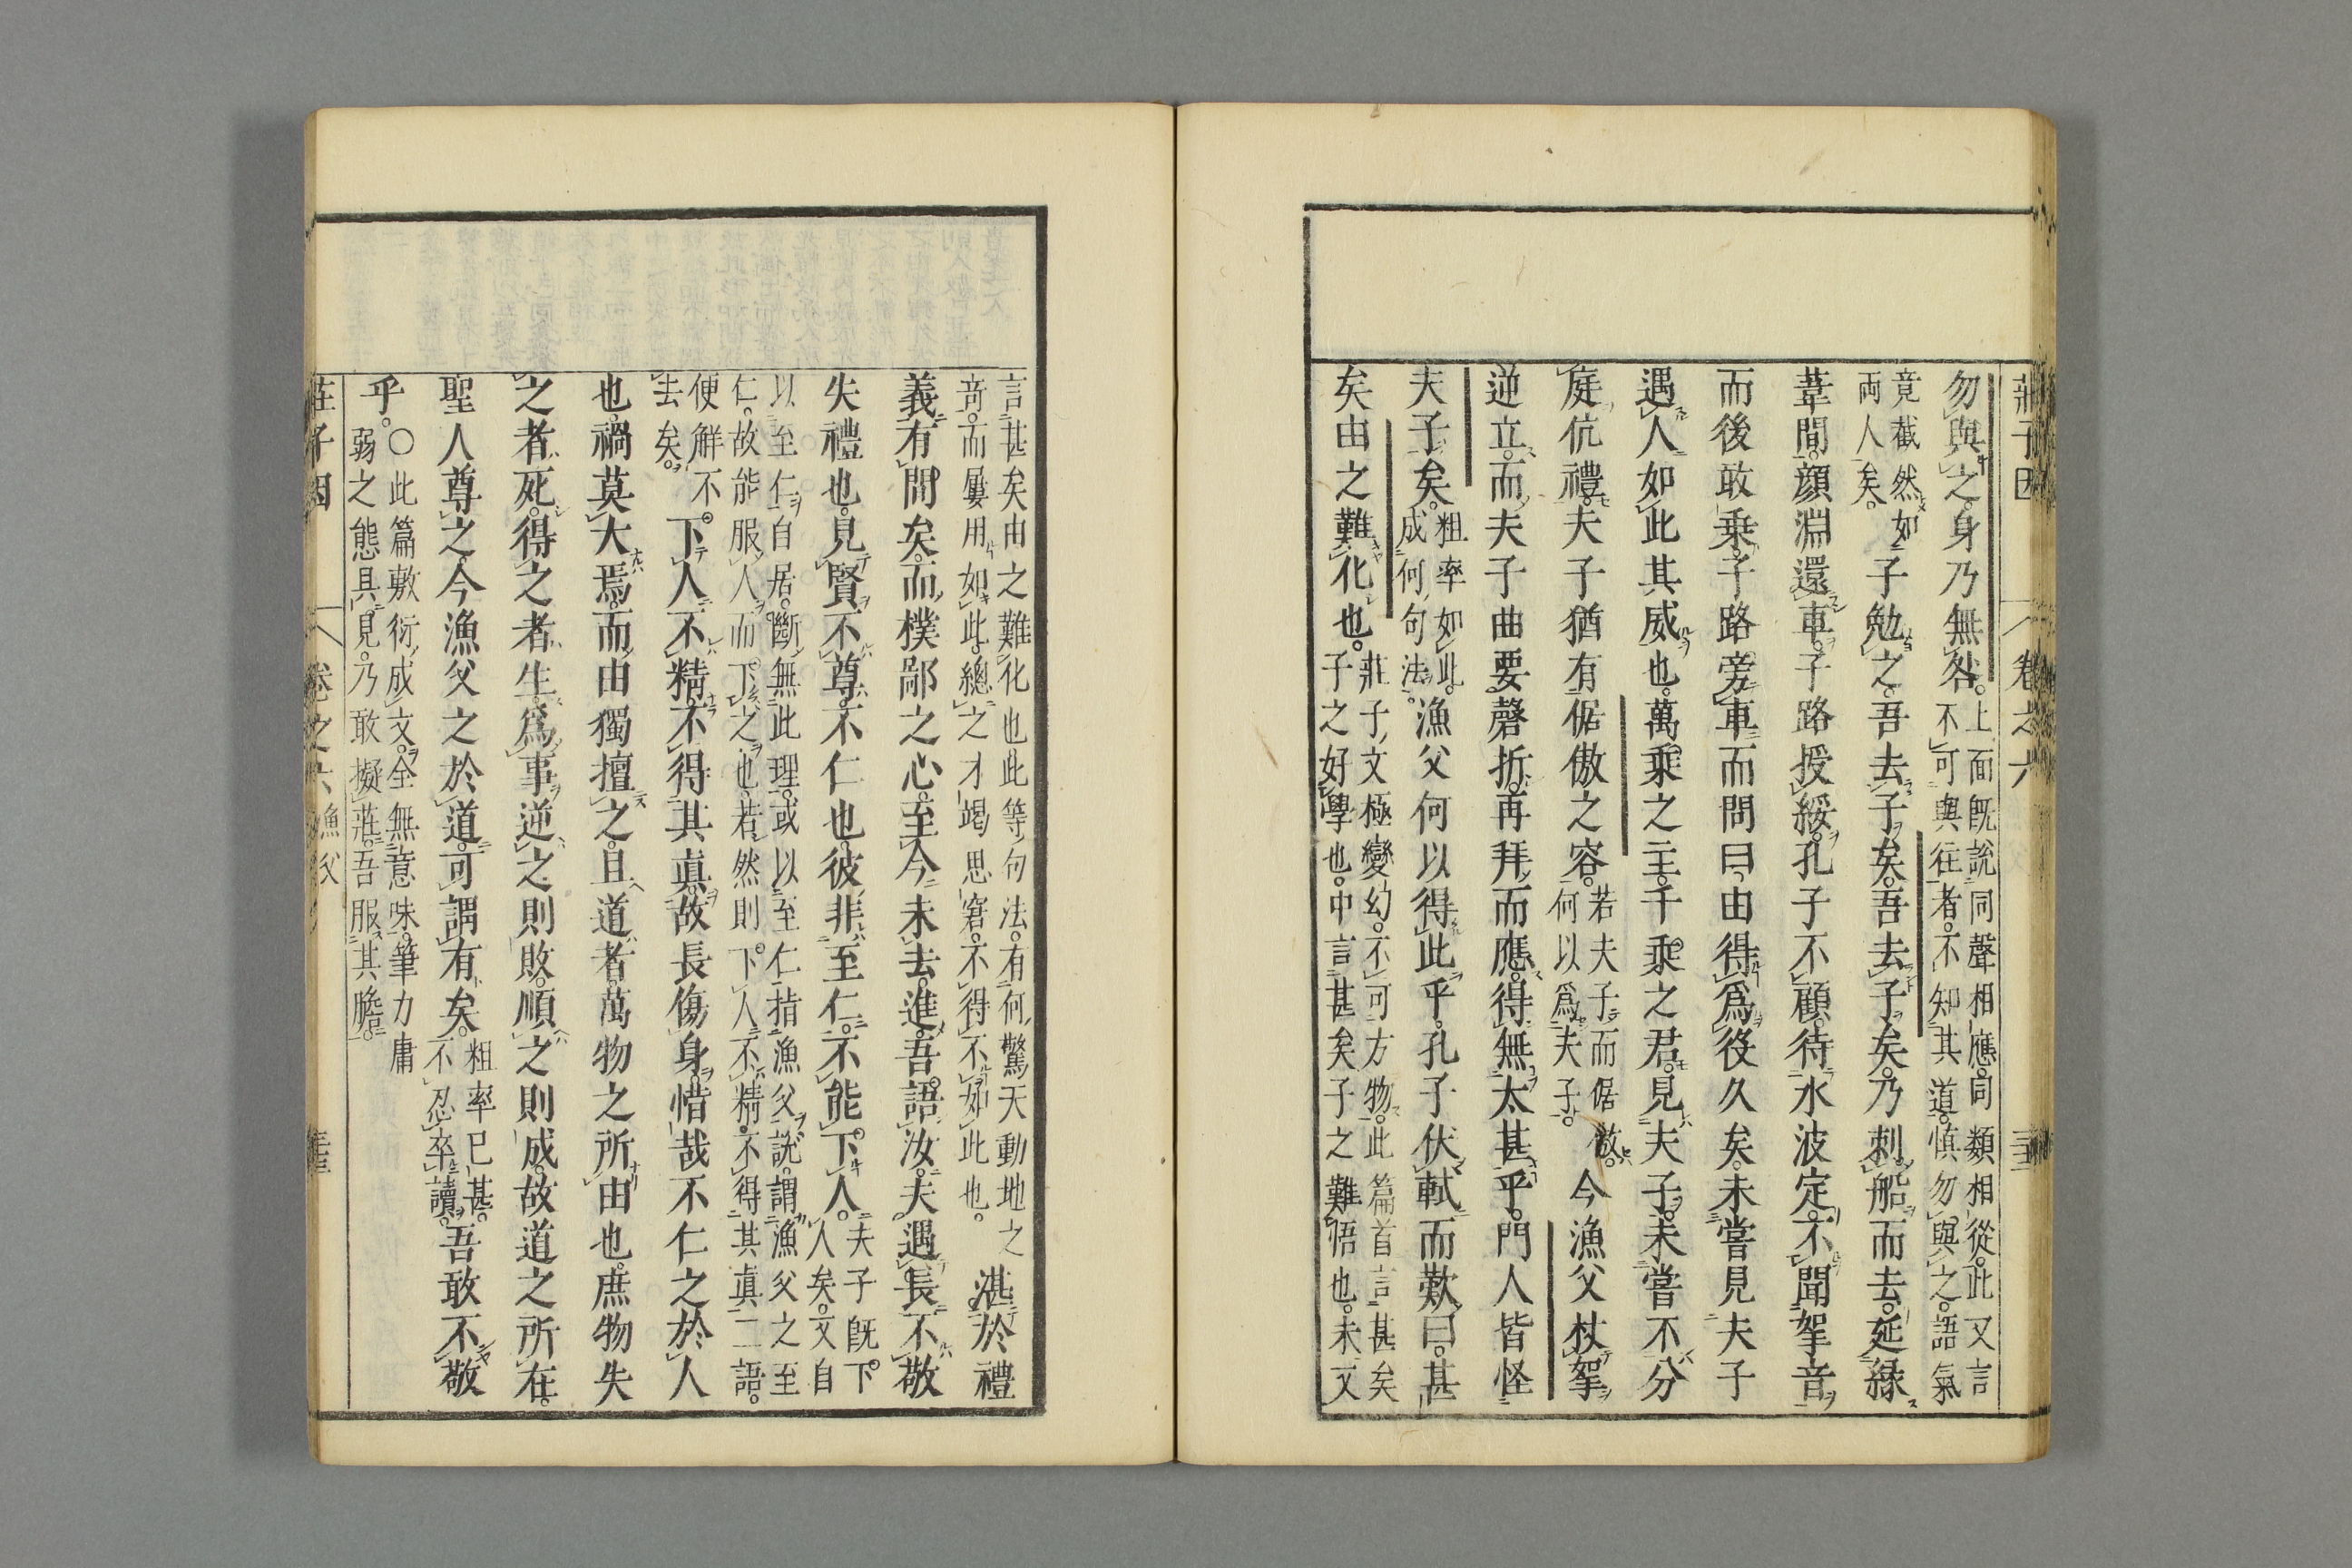 莊子因 卷之六
勿與之身乃無咎。上面既說同聲相應。同類相從。此又言
不可與往者。不知其道。慎勿與之。語氣
竟截然如
兩人矣。子勉之。吾去子矣。吾去子矣。乃刺船而去。延緣
葦間。顏淵還車。子路授綏。孔子不顧。待水波定。不聞挐音
而後敢乘。子路旁車而問曰。由得爲役久矣。未嘗見夫子
遇人如此其威也。萬乘之主。千乘之君。見夫子。未嘗不分
庭伉禮。夫子猶有倨傲之容。若夫子而倨傲。
何以爲夫子。今漁父杖挐
逆立。而夫子曲要磬折。再拜而應。得無太甚乎。門人皆怪
夫子矣。粗率如此。
成何句法。漁父何以得此乎。孔子伏軾而歎曰。甚
矣由之難化也。莊子文極變幻。不可方物。此篇首言甚矣
子之好學也。中言甚矣子之難悟也。未又
言甚矣由之難化也此等句法。有何驚天動地之
奇。而屢用如此。總之才竭思窘。不得不如此也。湛於禮
義有間矣。而樸鄙之心。至今未去。進。吾語汝。夫遇長不敬
失禮也。見賢不尊。不仁也。彼非至仁。不能下人。夫子既下
人矣。又自
以至仁自居。斷無此理。或以至仁指漁父說。謂漁父之至
仁。故能服人而下之也。若然則下人不精。不得其眞二語。
便解不
去矣。下人不精。不得其眞。故長傷身。惜哉不仁之於人
也。禍莫大焉。而由獨擅之。且道者。萬物之所由也。庶物失
之者死。得之者生。爲事逆之則敗。順之則成。故道之所在。
聖人尊之。今漁父之於道。可謂有矣。粗率已甚。
不忍卒讀。吾敢不敬
乎。○此篇敷衍成文。全無意味。筆力庸
弱之態具見。乃敢擬莊。吾服其膽。
莊子因 卷之六 漁父